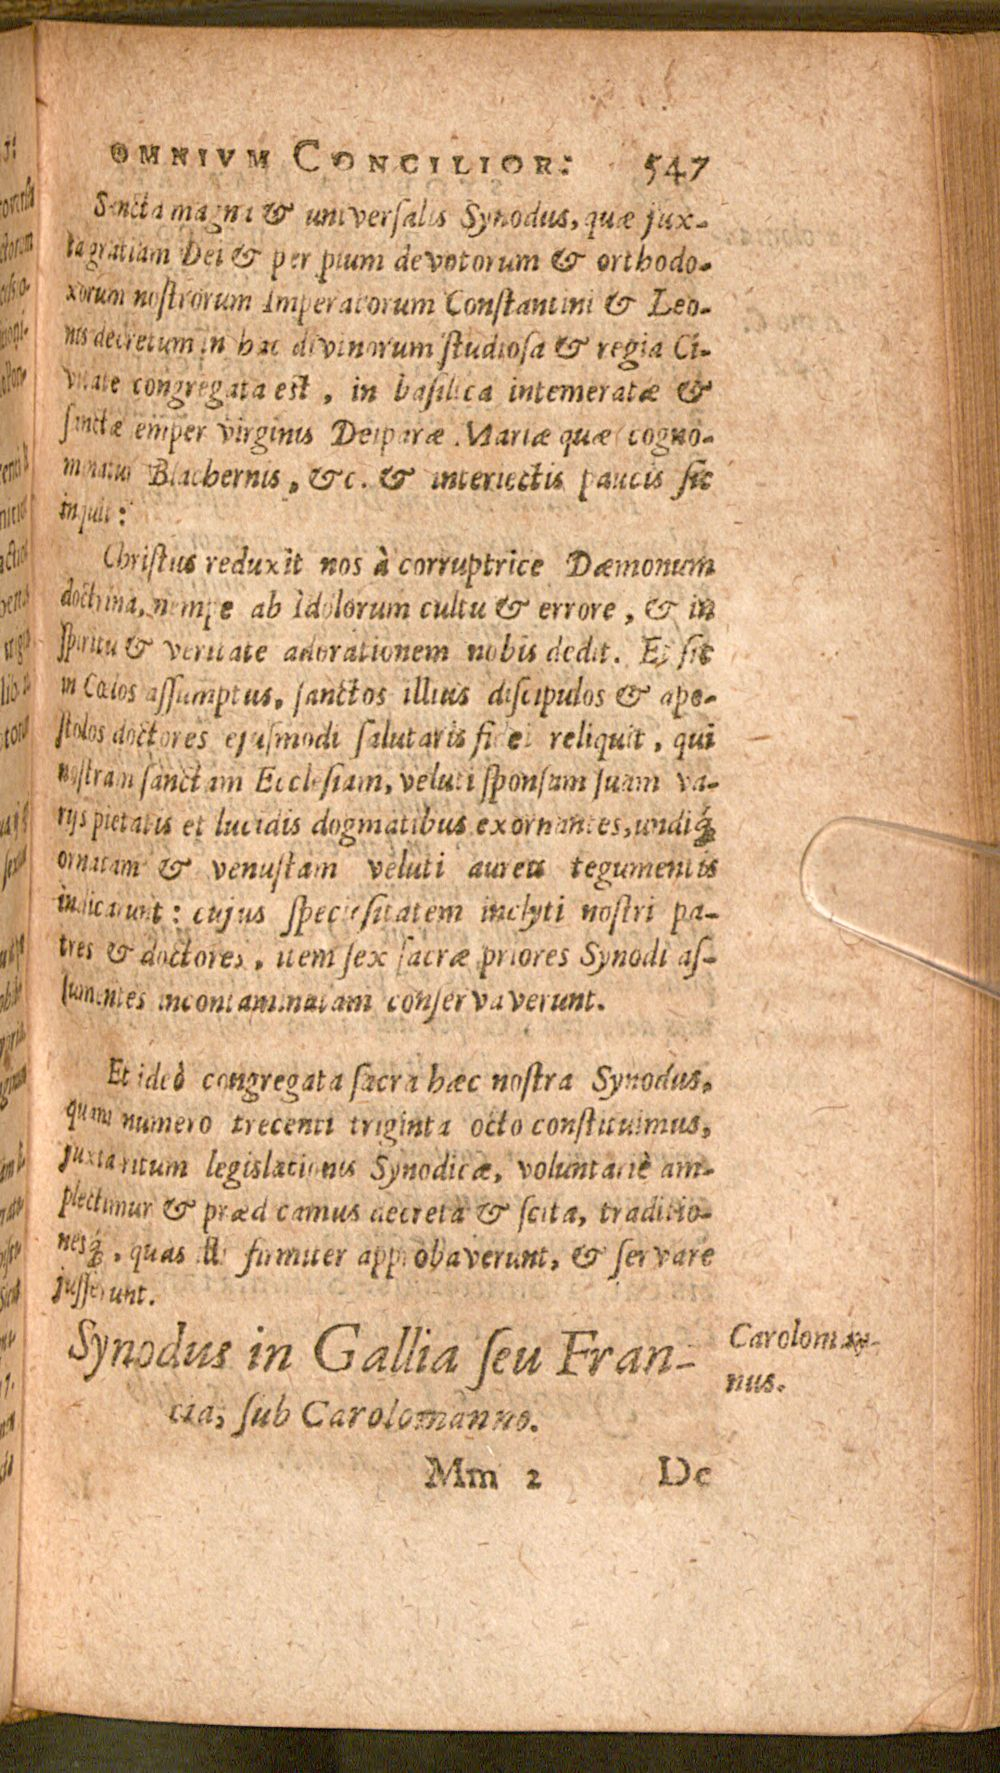 OMNIVM CONCILIOR: 547
Sancta magna & universalis Synodus, quæ jux-
ta gratiam Dei & per pium devotorum & orthodo-
xorum nostrorum Imperatorum Constantini & Leo-
nis decretum in hac divinorum studiosa & regia Ci-
vitate congregata est, in basilica intemeratæ &
sanctæ semper virginis Deiparæ Mariæ quæ cogno-
minatur Blachernis, &c. & interiectis paucis sic
inquit:
Christus reduxit nos à corruptrice Dæmonum
doctrina, nempe ab Idolorum cultu & errore, & in
spiritu & veritate adorationem nobis dedit. Et sic
in Cœlos assumptus, sanctos illius discipulos & apo-
stolos doctores ejusmodi salutaris fidei reliquit, qui
nostram sanctam Ecclesiam, veluti sponsam suam va-
rijs pietatis et lucidis dogmatibus exornantes, undiq́;
ornatam & venustam veluti aureis tegumentis
indicarunt: cujus speciositatem inclyti nostri pa-
tres & doctores, item sex sacræ priores Synodi as-
sumentes incontaminatam conservaverunt.
Et ideò congregata sacra hæc nostra Synodus,
quam numero trecenti triginta octo constituimus,
juxta ritum legislationis Synodicæ, voluntariè am-
plectimur & prædicamus decreta & scita, traditio-
nesq́;, quas illi firmiter approbaverunt, & servare
jusserunt.
Synodus in Gallia seu Fran-
cia, sub Carolomanno.
Caroloman-
nus.
Mm 2 De